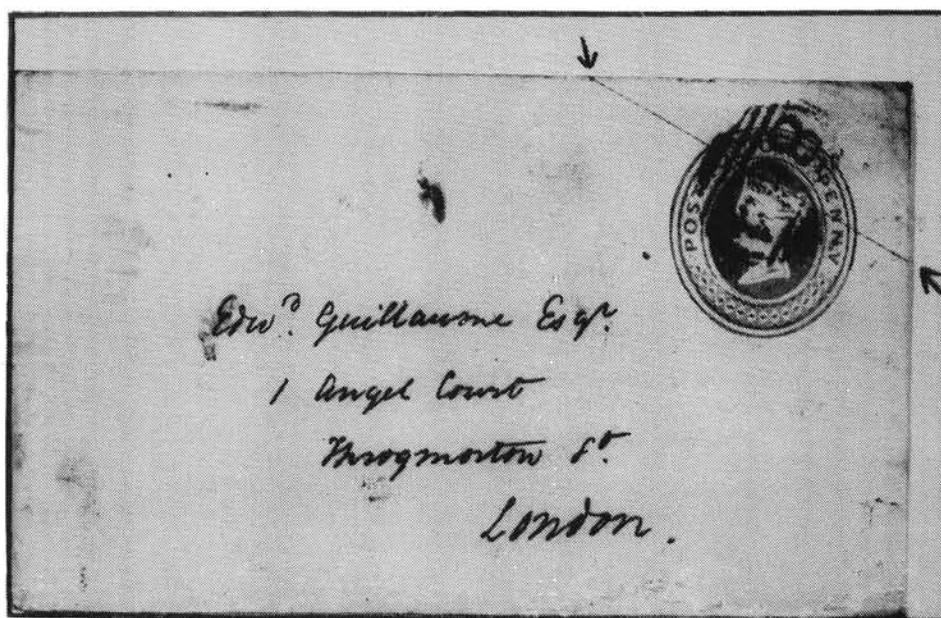 POST PENNY
Edwᵈ. Guillaume Esqʳ.
1 Angel Court
Throgmorton Sᵗ.
London.